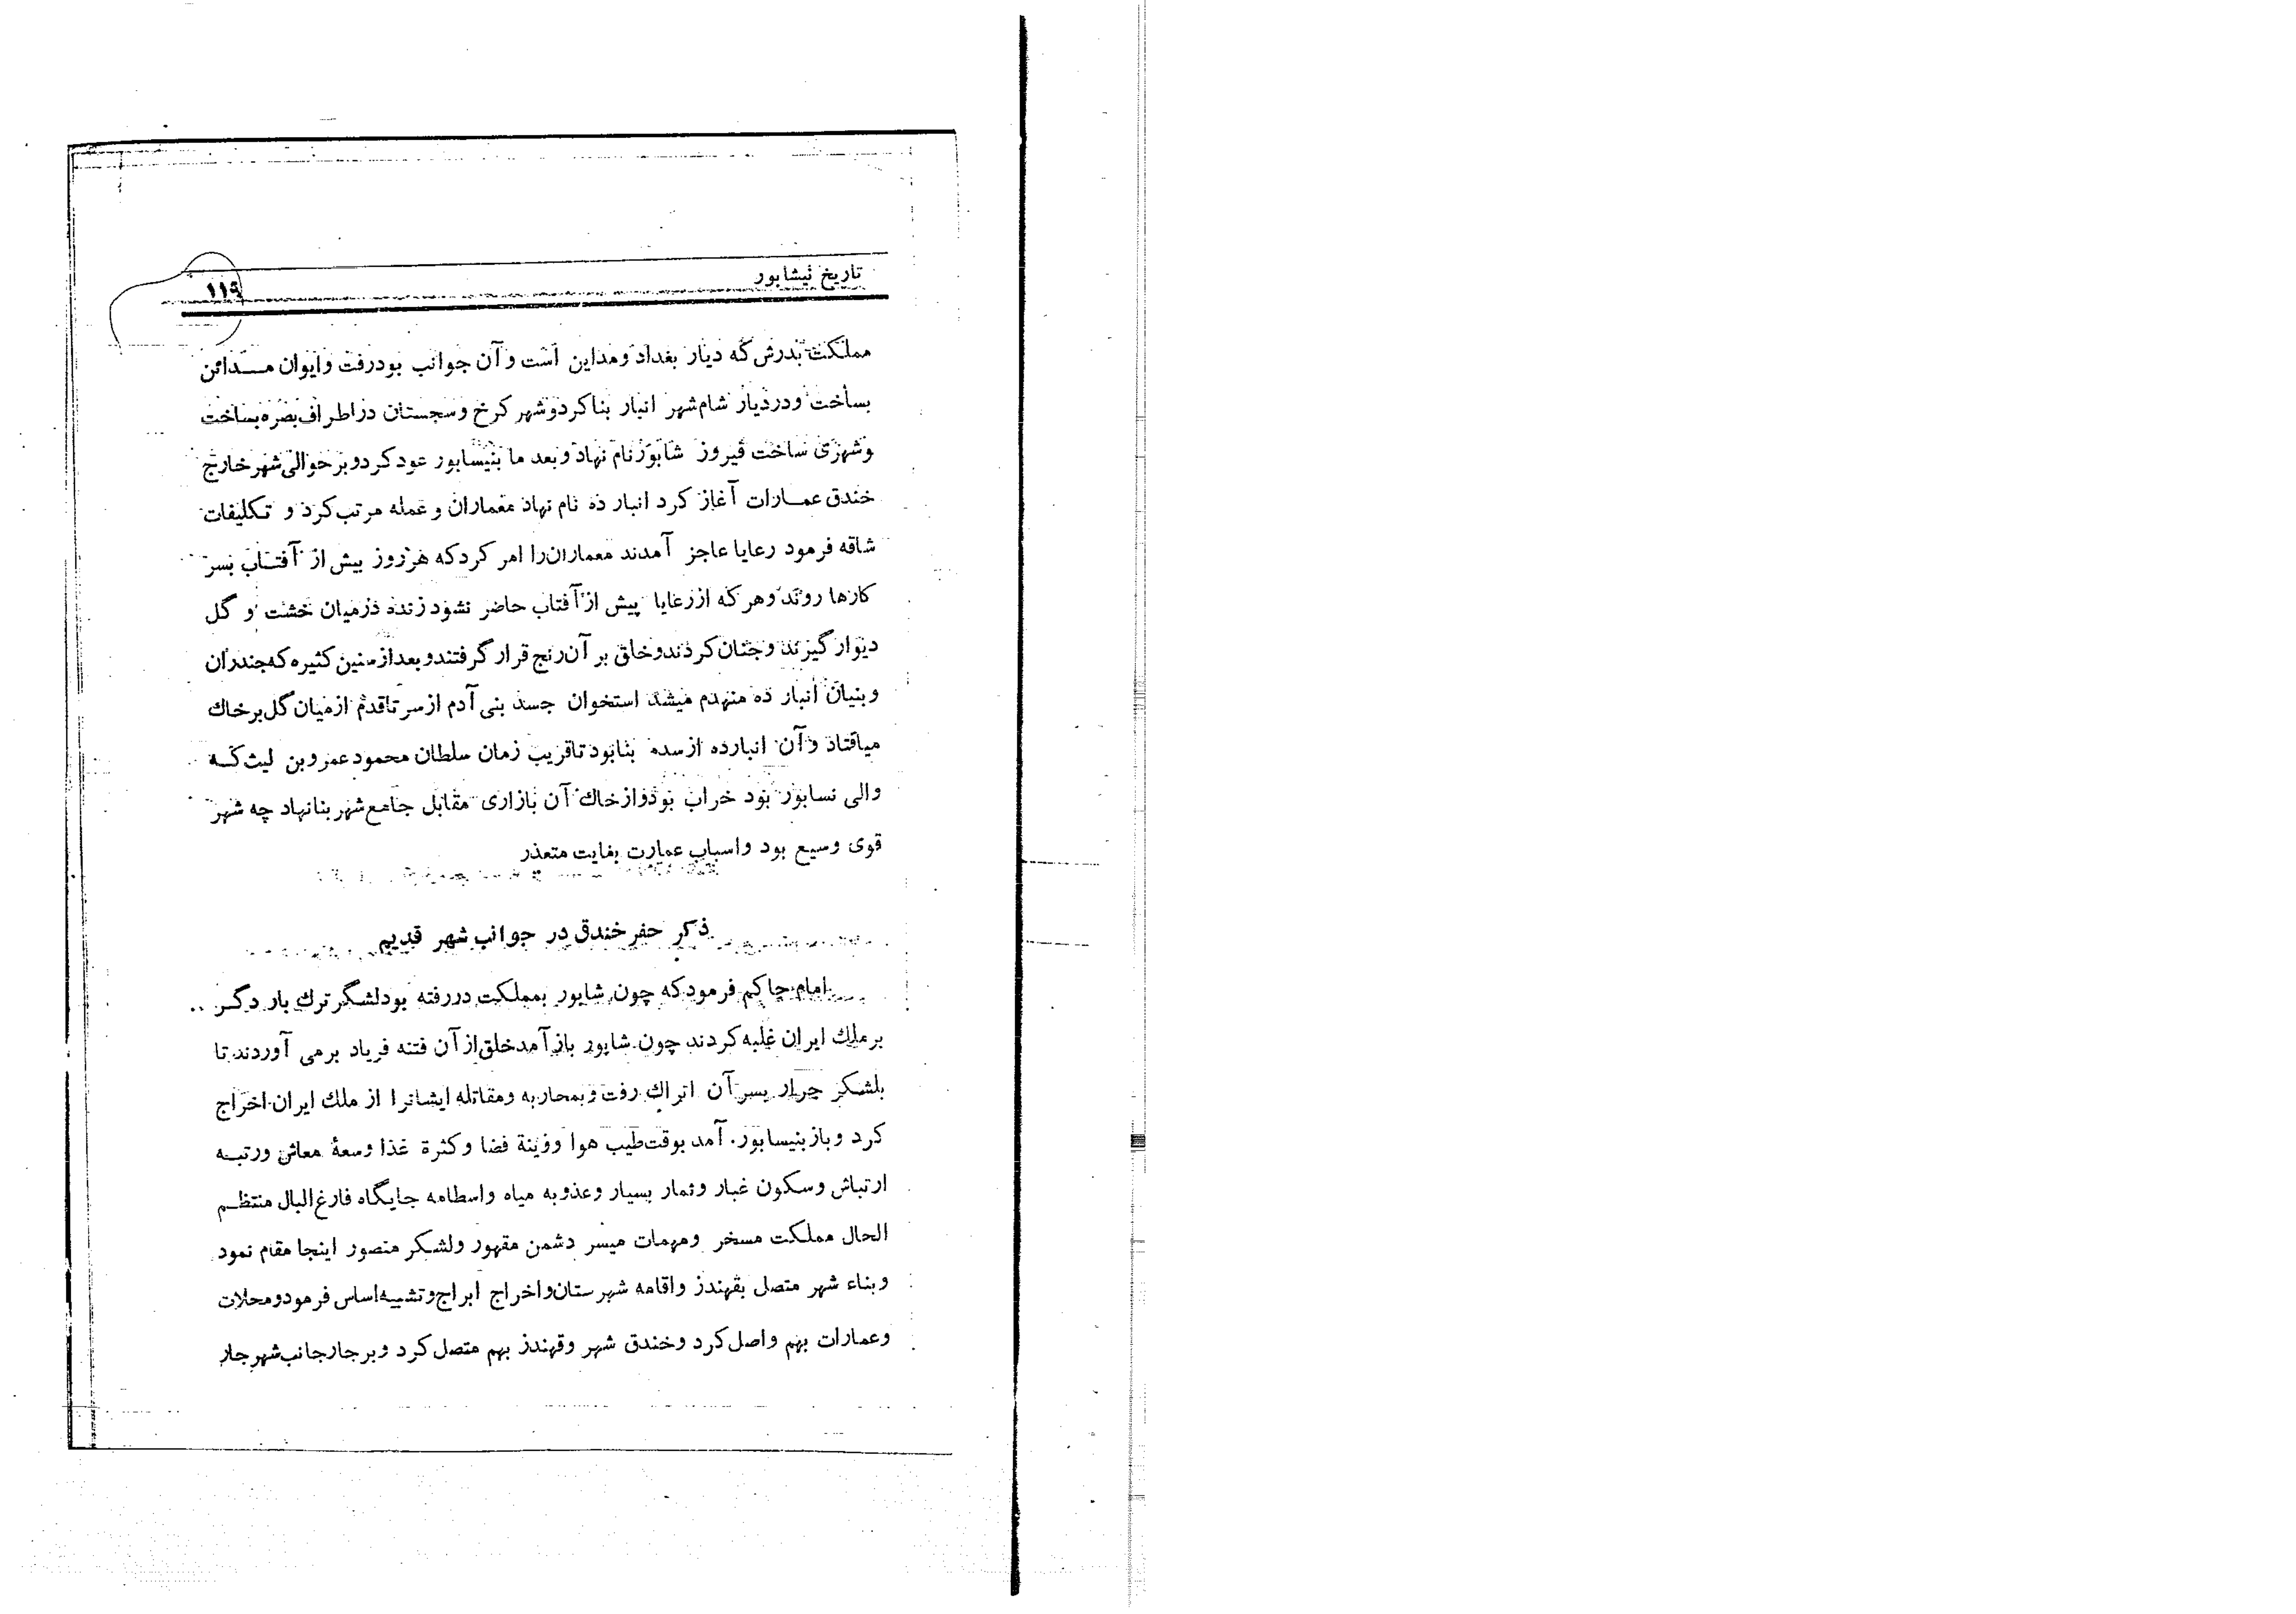 تاریخ نیشابور
۱۱۹
مملکت پدرش که دیار بغداد و مداین است و آن جوانب بود رفت و ایوان مدائن
بساخت و در دیار شام شهر انبار بنا کرد و شهر کرخ و سجستان در اطراف بصره بساخت
و شهری ساخت فیروز شابور نام نهاد و بعد ما بنیسابور عود کرد و بر حوالی شهر خارج
خندق عمارات آغاز کرد انبار ده نام نهاد معماران و عمله مرتب کرد و تکلیفات
شاقه فرمود رعایا عاجز آمدند معماران را امر کرد که هر روز بیش از آفتاب بسر
کارها روند و هر که از رعایا پیش از آفتاب حاضر نشود زنده در میان خشت و گل
دیوار گیرند و جنان کردند و خلق بر آن رنج قرار گرفتند و بعد از سنین کثیره که جندران
و بنیان انبار ده منهدم میشد استخوان جسد بنی آدم از سر تا قدم از میان گل بر خاك
میافتاد و آن انبارده از سده بنا بود تا قریب زمان سلطان محمود عمرو بن لیث که
والی نسابور بود خراب بود و از خاك آن بازاری مقابل جامع شهر بنا نهاد چه شهر
قوی وسیع بود و اسباب عمارت بغایت متعذر
ذکر حفر خندق در جوانب شهر قدیم
امام حاکم فرمود که چون شابور بمملکت در رفته بود لشگر ترك بار دگر
بر ملك ایران غلبه کردند چون شابور باز آمد خلق از آن فتنه فریاد برمی آوردند تا
بلشکر جرار بسر آن اتراك رفت و بمحاربه و مقاتله ایشانرا از ملك ایران اخراج
کرد و باز بنیسابور. آمد بوقت طیب هوا و زینة فضا و کثرة غذا وسعة معاش و رتبه
ارتباش و سکون غبار و ثمار بسیار و عذوبه میاه و اسطامه جایگاه فارغ البال منتظم
الحال مملکت مسخر و مهمات میسر دشمن مقهور و لشکر منصور اینجا مقام نمود
و بناء شهر متصل بقهندز و اقامه شهرستان و اخراج ابراج و تشبیه اساس فرمود و محلات
و عمارات بهم واصل کرد و خندق شهر و قهندز بهم متصل کرد و بر جار جانب شهر جار